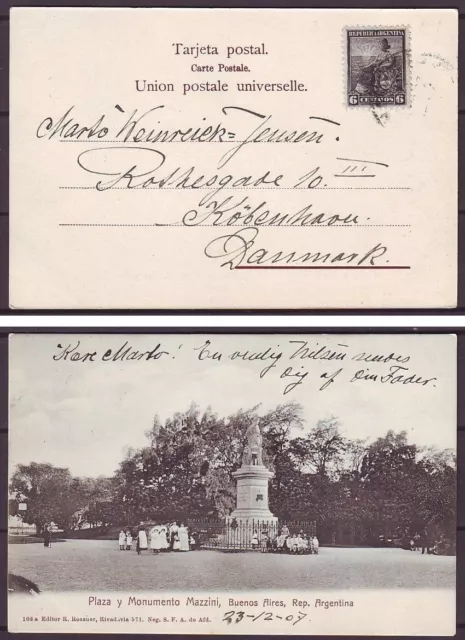 Tarjeta postal.
Carte Postale.
Union postale universelle.
REPUBLICA ARGENTINA
6 CENTAVOS 6
Marto Weinreich=Jensen.
Rothesgade 10. III
København.
Danmark.
Kære Marto! En venlig Hilsen sendes
Dig af Din Fader.
Plaza y Monumento Mazzini, Buenos Aires, Rep. Argentina
108a Editor R. Rosauer, Rivadavia 571. Neg. S. F. A. de Afd.
23-12-07